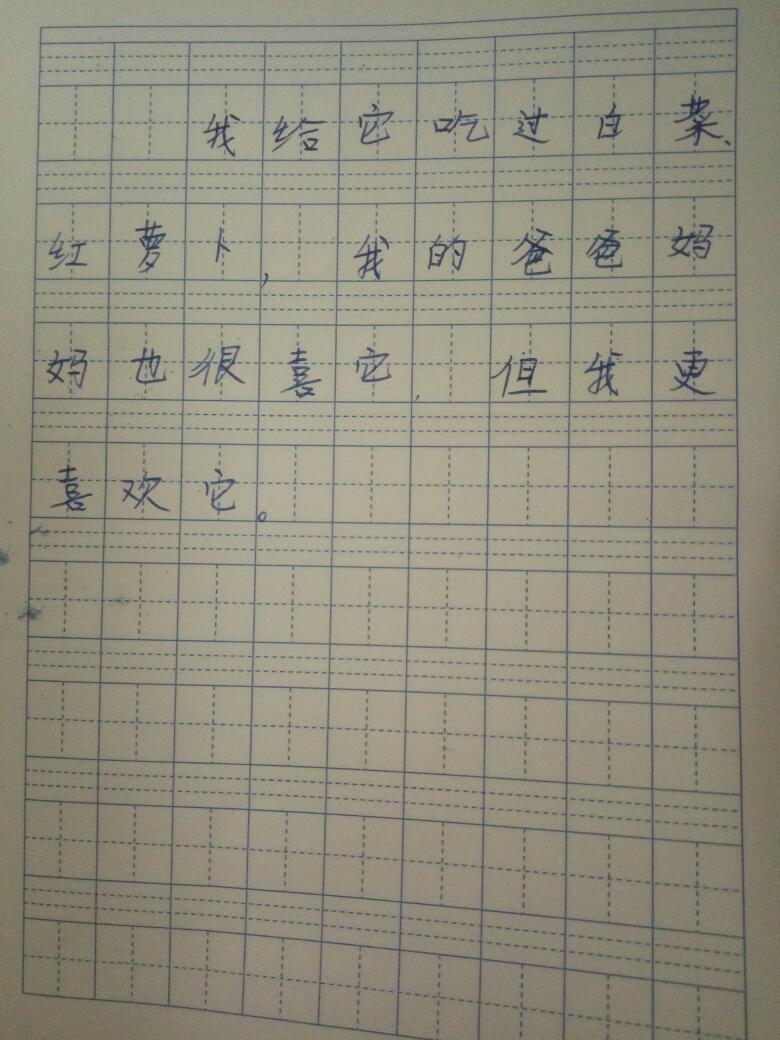 我给它吃过白菜、
红萝卜，我的爸爸妈
妈也很喜它，但我更
喜欢它。